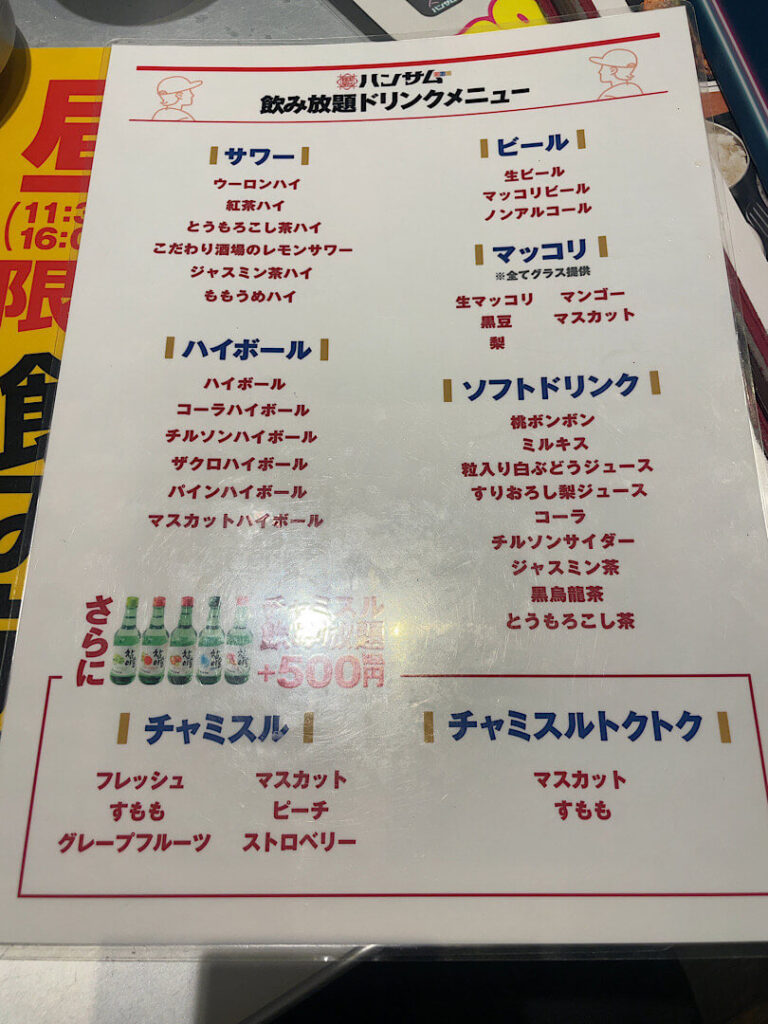 ハンサム
飲み放題ドリンクメニュー
サワー
ウーロンハイ
紅茶ハイ
とうもろこし茶ハイ
こだわり酒場のレモンサワー
ジャスミン茶ハイ
ももうめハイ
ハイボール
ハイボール
コーラハイボール
チルソンハイボール
ザクロハイボール
パインハイボール
マスカットハイボール
ビール
生ビール
マッコリビール
ノンアルコール
マッコリ
※全てグラス提供
生マッコリ マンゴー
黒豆 マスカット
梨
ソフトドリンク
桃ボンボン
ミルキス
粒入り白ぶどうジュース
すりおろし梨ジュース
コーラ
チルソンサイダー
ジャスミン茶
黒烏龍茶
とうもろこし茶
さらに
チャミスル
飲み放題
+500円
チャミスル
フレッシュ マスカット
すもも ピーチ
グレープフルーツ ストロベリー
チャミスルトクトク
マスカット
すもも
昼
(11:3
16:0
限
飲